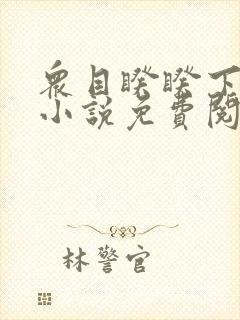 衆目睽睽下
小說免費閱
林警官